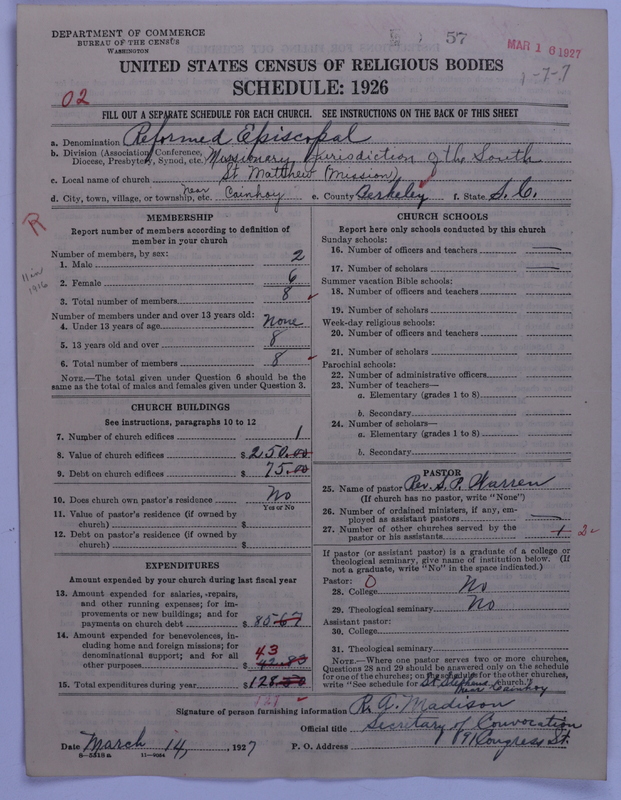 DEPARTMENT OF COMMERCE
BUREAU OF THE CENSUS
WASHINGTON
57
MAR 16 1927
1-7-7
UNITED STATES CENSUS OF RELIGIOUS BODIES
SCHEDULE: 1926
02
FILL OUT A SEPARATE SCHEDULE FOR EACH CHURCH. SEE INSTRUCTIONS ON THE BACK OF THIS SHEET
a. Denomination Reformed Episcopal
b. Division (Association, Conference, Diocese, Presbytery, Synod, etc. Missionary Jurisdiction of the South
c. Local name of church St. Matthew (Mission)
d. City, town, village, or township, etc. near Cainhoy e. County Berkeley f. State S.C.
R
11 in 1916
MEMBERSHIP
Report number of members according to definition of
member in your church
Number of members, by sex:
1. Male 2
2. Female 6
3. Total number of members 8
Number of members under and over 13 years old:
4. Under 13 years of age None
5. 13 years old and over 8
6. Total number of members 8
NOTE.—The total given under Question 6 should be the
same as the total of males and females given under Question 3.
CHURCH BUILDINGS
See instructions, paragraphs 10 to 12
7. Number of church edifices 1
8. Value of church edifices $250.00
9. Debt on church edifices 75.00
10. Does church own pastor's residence No
Yes or No
11. Value of pastor's residence (if owned by
church) $
12. Debt on pastor's residence (if owned by
church) $
EXPENDITURES
Amount expended by your church during last fiscal year
13. Amount expended for salaries, repairs,
and other running expenses; for im-
provements or new buildings; and for
payments on church debt $ 85 67
14. Amount expended for benevolences, in-
cluding home and foreign missions; for
denominational support; and for all
other purposes 43
15. Total expenditures during year $128
CHURCH SCHOOLS
Report here only schools conducted by this church
Sunday schools:
16. Number of officers and teachers
17. Number of scholars
Summer vacation Bible schools:
18. Number of officers and teachers
19. Number of scholars
Week-day religious schools:
20. Number of officers and teachers
21. Number of scholars
Parochial schools:
22. Number of administrative officers
23. Number of teachers—
a. Elementary (grades 1 to 8)
b. Secondary
24. Number of scholars—
a. Elementary (grades 1 to 8)
b. Secondary
PASTOR
25. Name of pastor Rev. S. P. Warren
(If church has no pastor, write "None")
26. Number of ordained ministers, if any, em-
ployed as assistant pastors
27. Number of other churches served by the
pastor or his assistants 1 2
If pastor (or assistant pastor) is a graduate of a college or
theological seminary, give name of institution below. (If
not a graduate, write "No" in the space indicated.)
Pastor: 0
28. College No
29. Theological seminary No
Assistant pastor:
30. College
31. Theological seminary
NOTE.—Where one pastor serves two or more churches,
Questions 28 and 29 should be answered only on the schedule
for one of the churches; on the schedules for the other churches,
write "See schedule for St. Stephens church."
near Cainhoy
Signature of person furnishing information R. A. Madison
Official title Secretary of Convocation
Date March 14, 1927 P. O. Address 91 Congress St.
8—5318a 11—9084